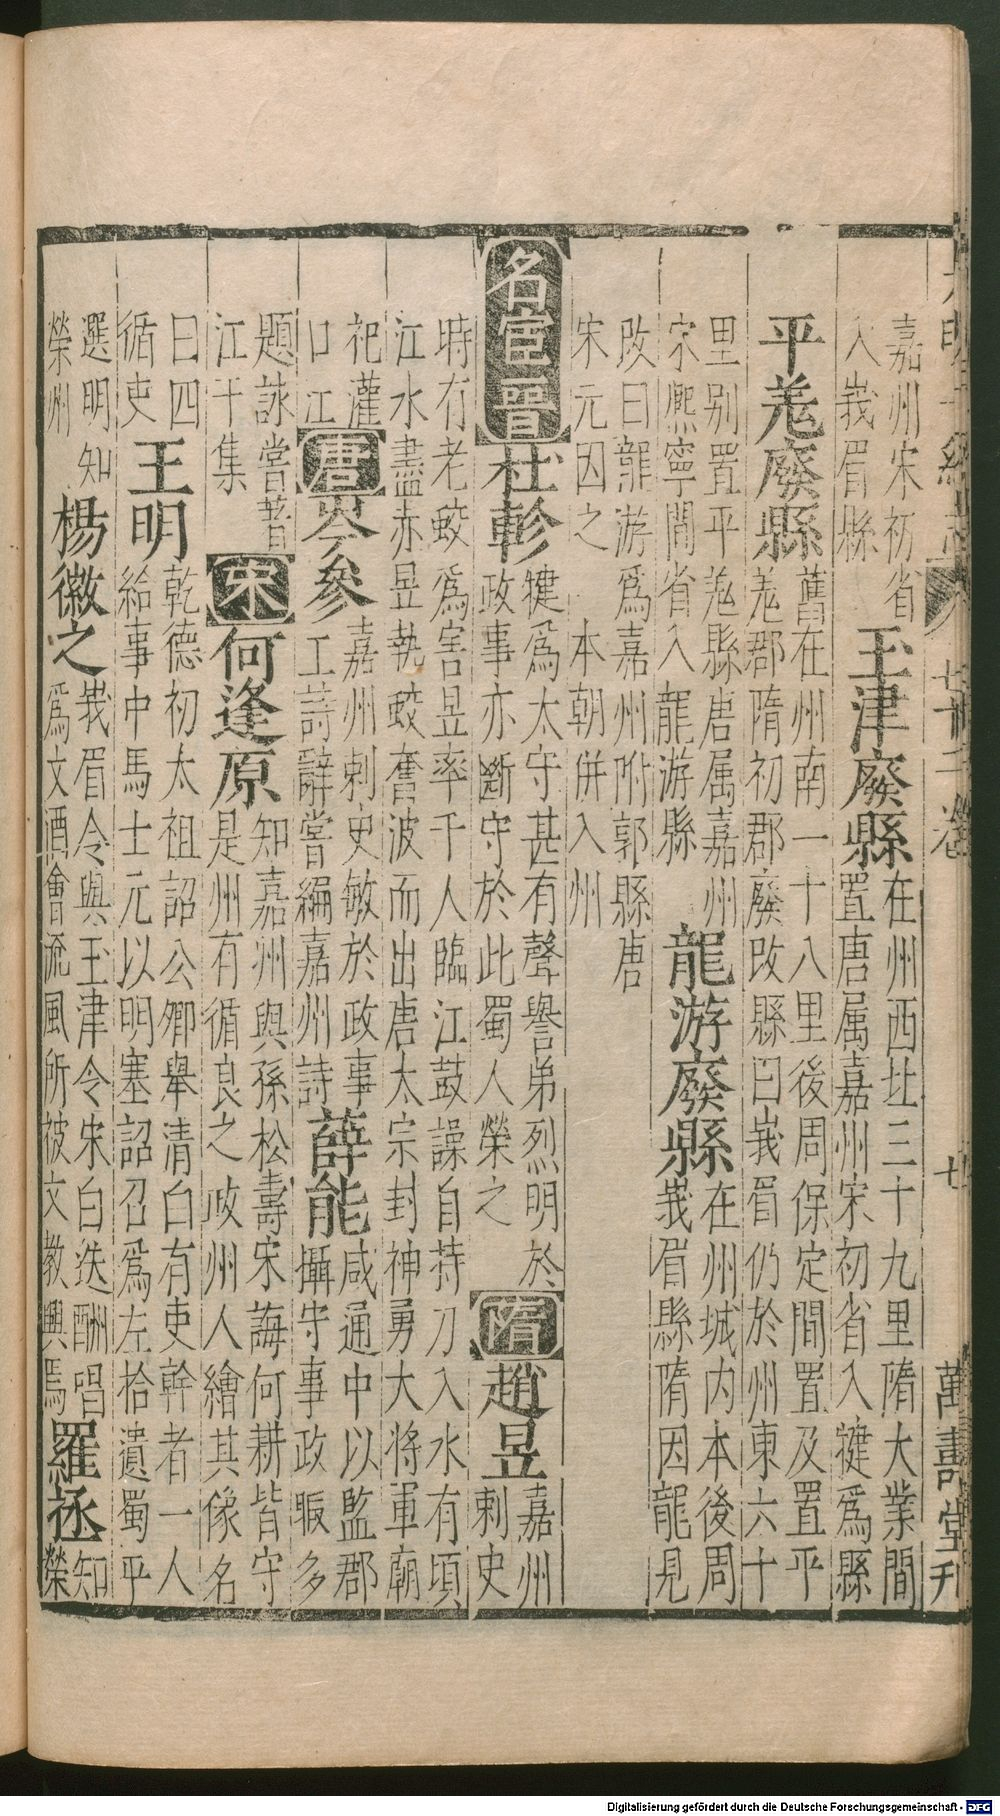 明一統志 七十二卷 七 萬壽堂刊
嘉州宋初省
入峩眉縣
玉津廢縣
在州西北三十九里隋大業間
置唐属嘉州宋初省入犍爲縣
平羗廢縣
舊在州南一十八里後周保定間置及置平
羗郡隋初郡廢改縣曰峩眉仍於州東六十
里别置平羗縣唐属嘉州
宋熈寧間省入龍游縣
龍游廢縣
在州城内本後周
峩眉縣隋因龍見
改曰龍游爲嘉州附郭縣唐
宋元因之 本朝併入州
名宦晉杜軫
犍爲太守甚有聲譽弟烈明於
政事亦斷守於此蜀人榮之
隋趙昱
嘉州
刺史
時有老蛟爲害昱率千人臨江鼓譟自持刀入水有頃
江水盡赤昱執蛟奮波而出唐太宗封神勇大将軍廟
祀灌
口江
唐岑參
嘉州刺史敏於政事
工詩辭嘗編嘉州詩
薛能
咸通中以監郡
攝守事政暇多
題詠嘗著
江干集
宋何逢原
知嘉州與孫松壽宋誨何耕皆守
是州有循良之政州人繪其像名
曰四
循吏
王明
乾德初太祖詔公卿舉清白有吏幹者一人
給事中馬士元以明塞詔召爲左拾遺蜀平
選明知
榮州
楊徽之
峩眉令與玉津令宋白迭酬唱
爲文酒會流風所被文教興焉
羅拯
知
榮
Digitalisierung gefördert durch die Deutsche Forschungsgemeinschaft - DFG